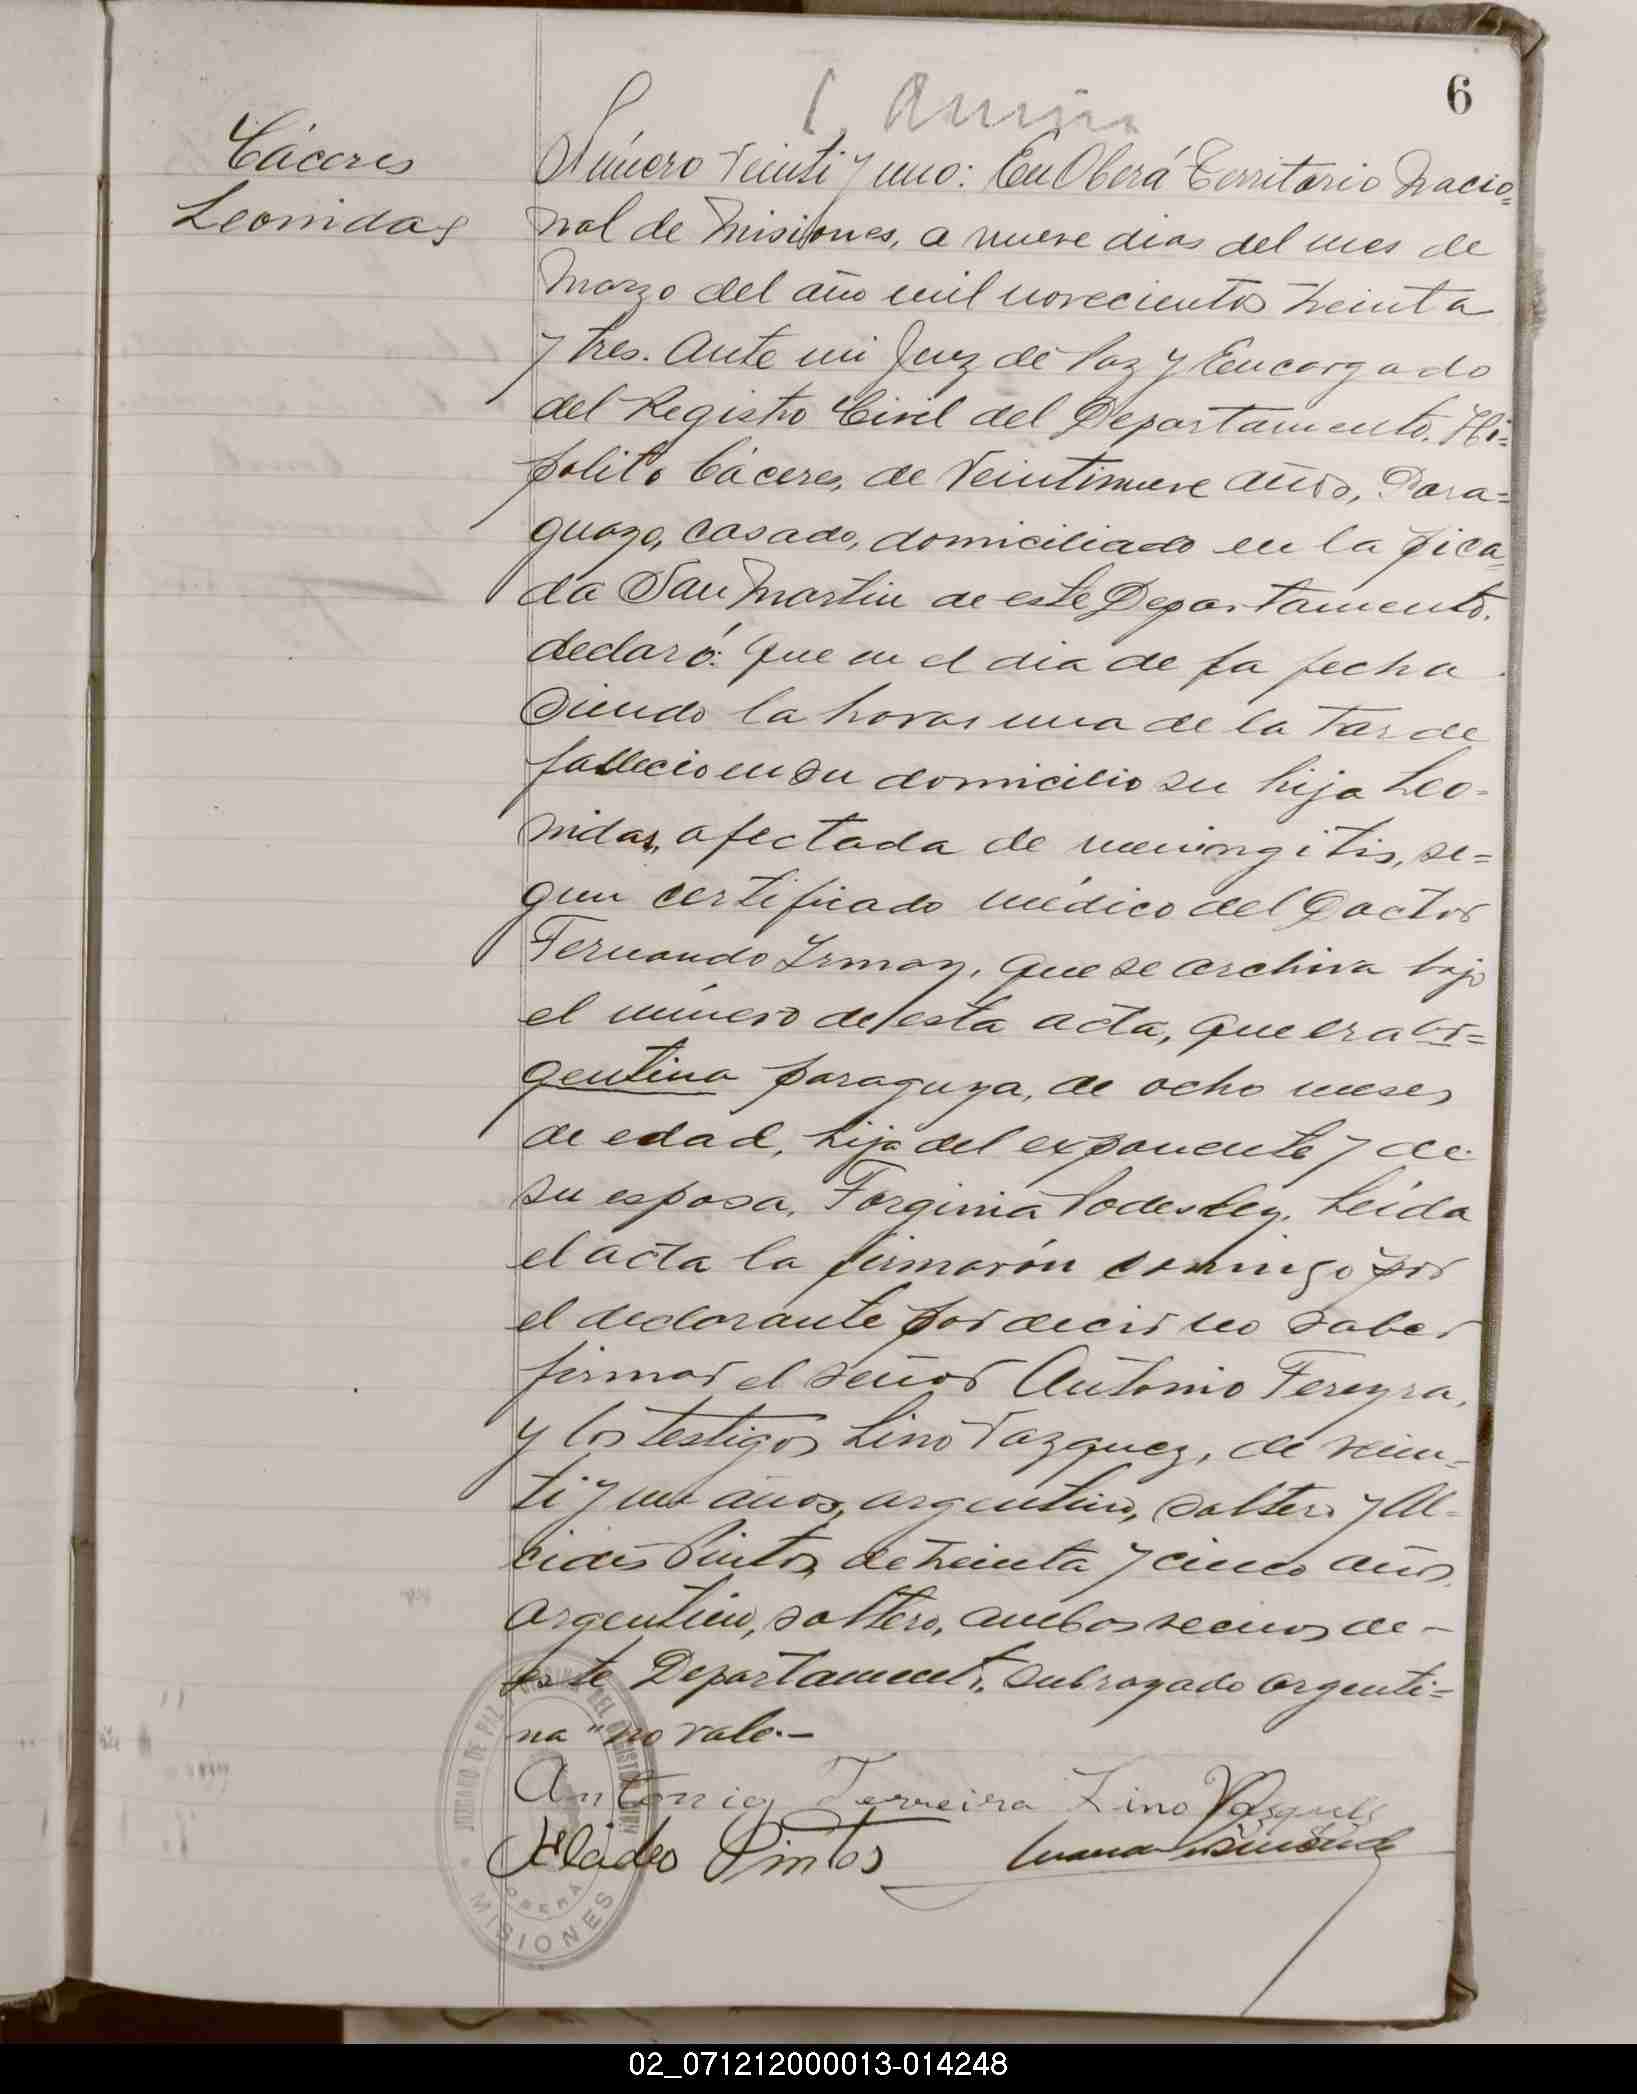 6
Cáceres
Leonidas
Número veinti y uno: En Oberá Territorio Nacio=
nal de Misiones, a nueve dias del mes de
Marzo del año mil novecientos treinta
y tres. Ante mi Juez de Paz y Encargado
del Registro Civil del Departamento. Hi=
polito Cáceres, de veintinueve años, Para=
guayo, casado, domiciliado en la pica=
da San Martin de este Departamento.
declaró: Que en el dia de la fecha
siendo la horas una de la tarde
fallecio en su domicilio su hija Leo=
nidas, afectada de meningitis, se=
gun certificado médico del Doctor
Fernando Irmay, que se archiva bajo
el número de esta acta, que era ar=
gentina paraguya, de ocho meses
de edad, hija del exponente y de
su esposa, Forginia Leida
el acta la firmarón conmigo por
el declarante por decir no saber
firmar el señor Antonio Fereyra,
y los testigos Lino Vazquez, de vein=
ti y un años, argentino, soltero y Al=
cides Pintos, de treinta y cinco años.
argentino, soltero, ambos vecinos de-
este Departamento. subrayado argenti=
na "no vale.-
Antonio Ferreira Lino Vasquez
Pintos
JUZGADO DE PAZ DEL REGISTRO CIVIL
OBERÁ
MISIONES
02_071212000013-014248